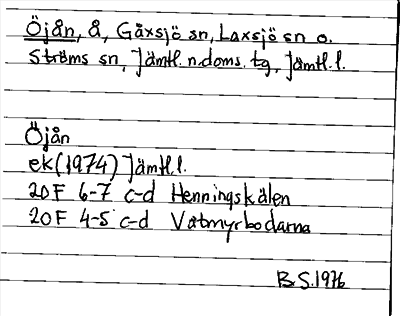 Öjån, å, Gåxsjö sn, Laxsjö sn o.
Ströms sn, Jämtl. n. doms. tg, Jämtl. l.
Öjån
ek (1974) Jämtl. l.
20F 6-7 c-d Henningskälen
20F 4-5 c-d Vatmyrbodarna
B S. 1976